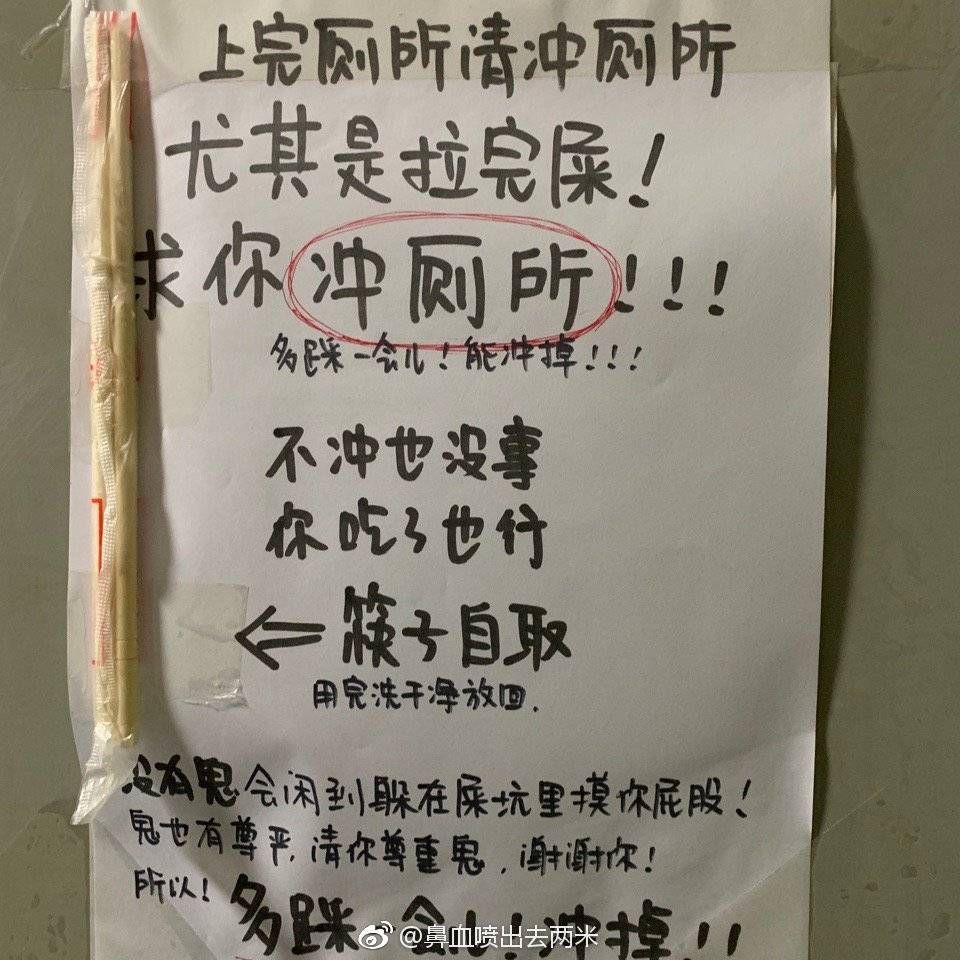 上完厕所请冲厕所
尤其是拉完屎!
求你冲厕所!!!
多踩一会儿!能冲掉!!!
不冲也没事
你吃了也行
⇐筷子自取
用完洗干净放回.
没有鬼会闲到躲在屎坑里摸你屁股!
鬼也有尊严,请你尊重鬼,谢谢你!
所以!多踩一会儿!冲掉!!
@鼻血喷出去两米